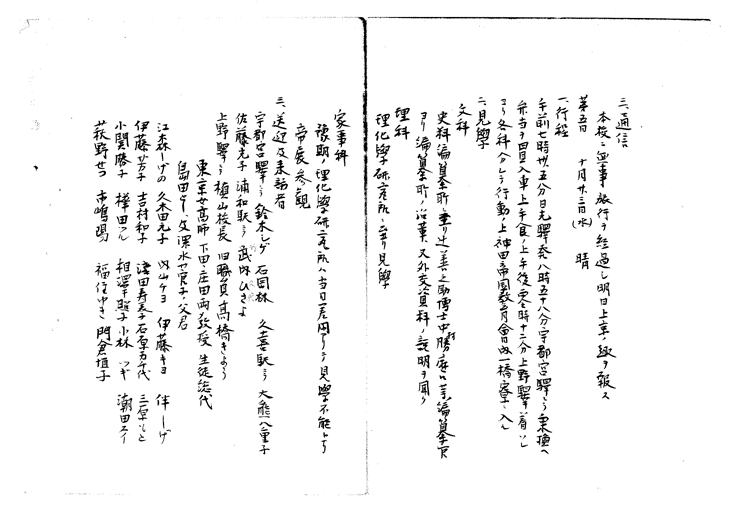 三、通信
本校ニ無事旅行ヲ経過シ明日上京ノ趣ヲ報ス
第五日 十月廿三日(水) 晴
一、行程
午前七時廿五分日光驛発八時五十八分宇都宮驛ニテ乗換ヘ
弁当ヲ買入車上午食ノ上午後零時十六分上野驛ニ着シ
ヨリ各科分レテ行動ノ上神田帝国教育會内一橋寮ニ入ル
二、見學
文科
史料編纂所ニ至リ辻善之助博士中勝廣 編纂官
ヨリ編纂所ノ沿革又外交資料ノ説明ヲ聞ク
理科
理化學研究所ニ至リ見學
家事科
豫期ノ理化學研究所ハ当日 見學不能ニテ
帝展参観
三、送迎及来訪者
宇都宮驛ニテ 鈴木シゲ 石岡林 久喜駅ニテ 大熊八重子
佐藤光子 浦和駅ニテ 武内ひさよ
上野驛ニテ 槇山校長 旧職員高橋きよう
東京女高師 下田、庄田両教授 生徒総代
島田 深水 子ノ父君
江森しげの 久本田元子 内山ケヨ 伊藤キヨ 伴しげ
伊藤芳子 吉村和子 澄田寿衣子 石原カチ代 三原もと
小関勝子 樺田ツル 相澤照子 小林ツギ 瀬田スイ
荻野せつ 市嶋陽 福住ゆき 門倉恒子